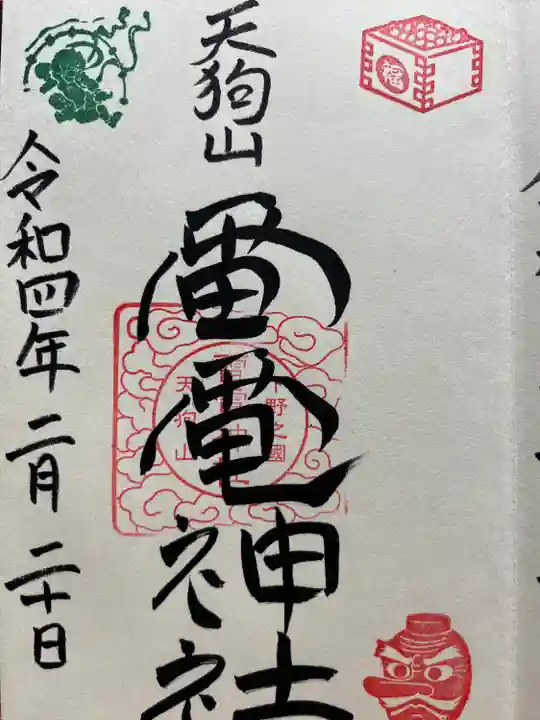 福
天狗山
雷電神社
下野之國
雷電神社
天狗山
令和四年二月二十日